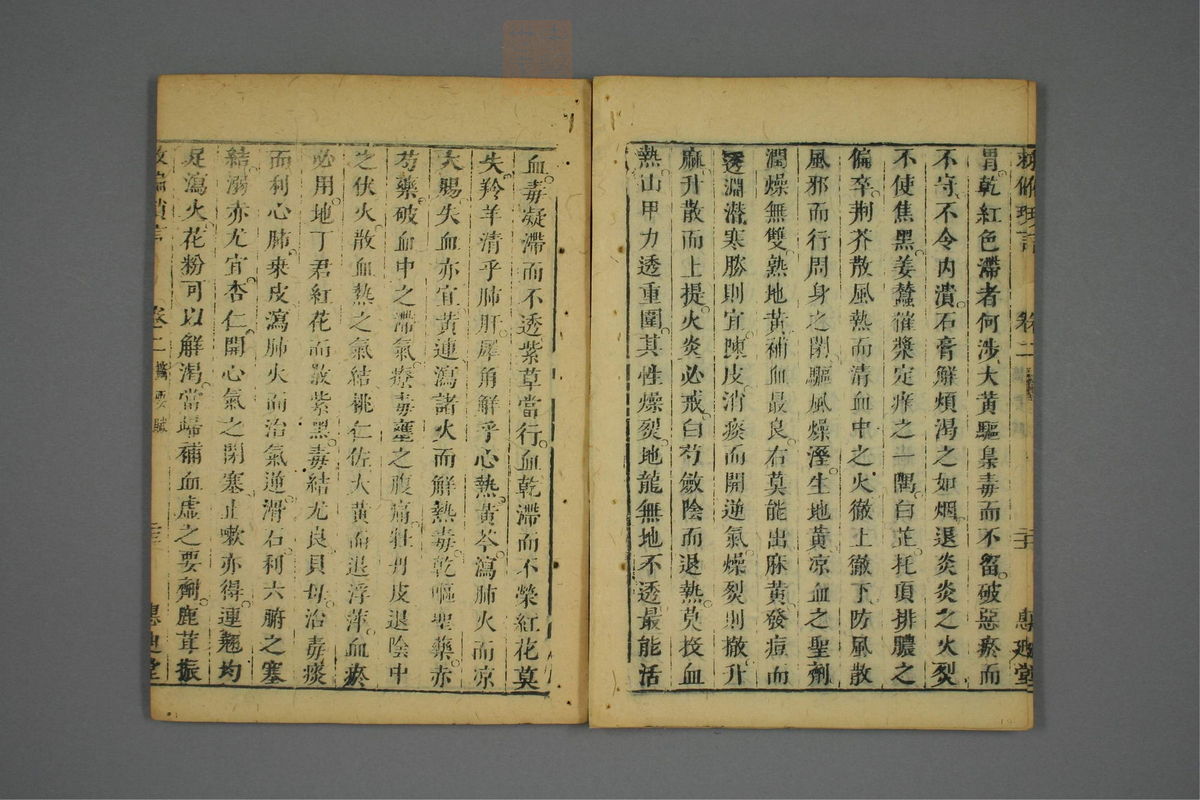 卷二
惠迪堂
胃乾紅色滯者何涉大黃驅梟毒而不留破惡瘀而
不守不令內潰石膏解煩渴之如烟退炎炎之火裂
不使焦黑姜蠶催漿定痒之一隅白芷托頂排膿之
偏卒荆芥散風熱而清血中之火徹上徹下防風散
風邪而行周身之閉驅風燥溼生地黃凉血之聖劑
潤燥無雙熟地黃補血最良右莫能出麻黃發痘而
透淵潜寒勝則宜陳皮消痰而開逆氣燥裂則撤升
麻升散而上提火炎必戒白芍斂陰而退熱莫投血
熱山甲力透重圍其性燥裂地龍無地不透最能活
血毒凝滯而不透紫草當行血乾滯而不榮紅花莫
失羚羊清乎肺肝犀角解乎心熱黃芩瀉肺火而凉
大腸失血亦宜黃連瀉諸火而解熱毒乾嘔聖藥赤
芍藥破血中之滯氣療毒壅之腹痛牡丹皮退陰中
之伏火散血熱之氣結桃仁佐大黃而退浮萍血瘀
必用地丁君紅花而散紫黑毒結尤良貝母治毒痰
而利心肺桒皮瀉肺火而治氣逆滑石利六腑之塞
結溺亦尤宜杏仁開心氣之閉塞止嗽亦得連翹均
是瀉火花粉可以解渴當歸補血虛之要劑鹿茸振
卷二
惠迪堂